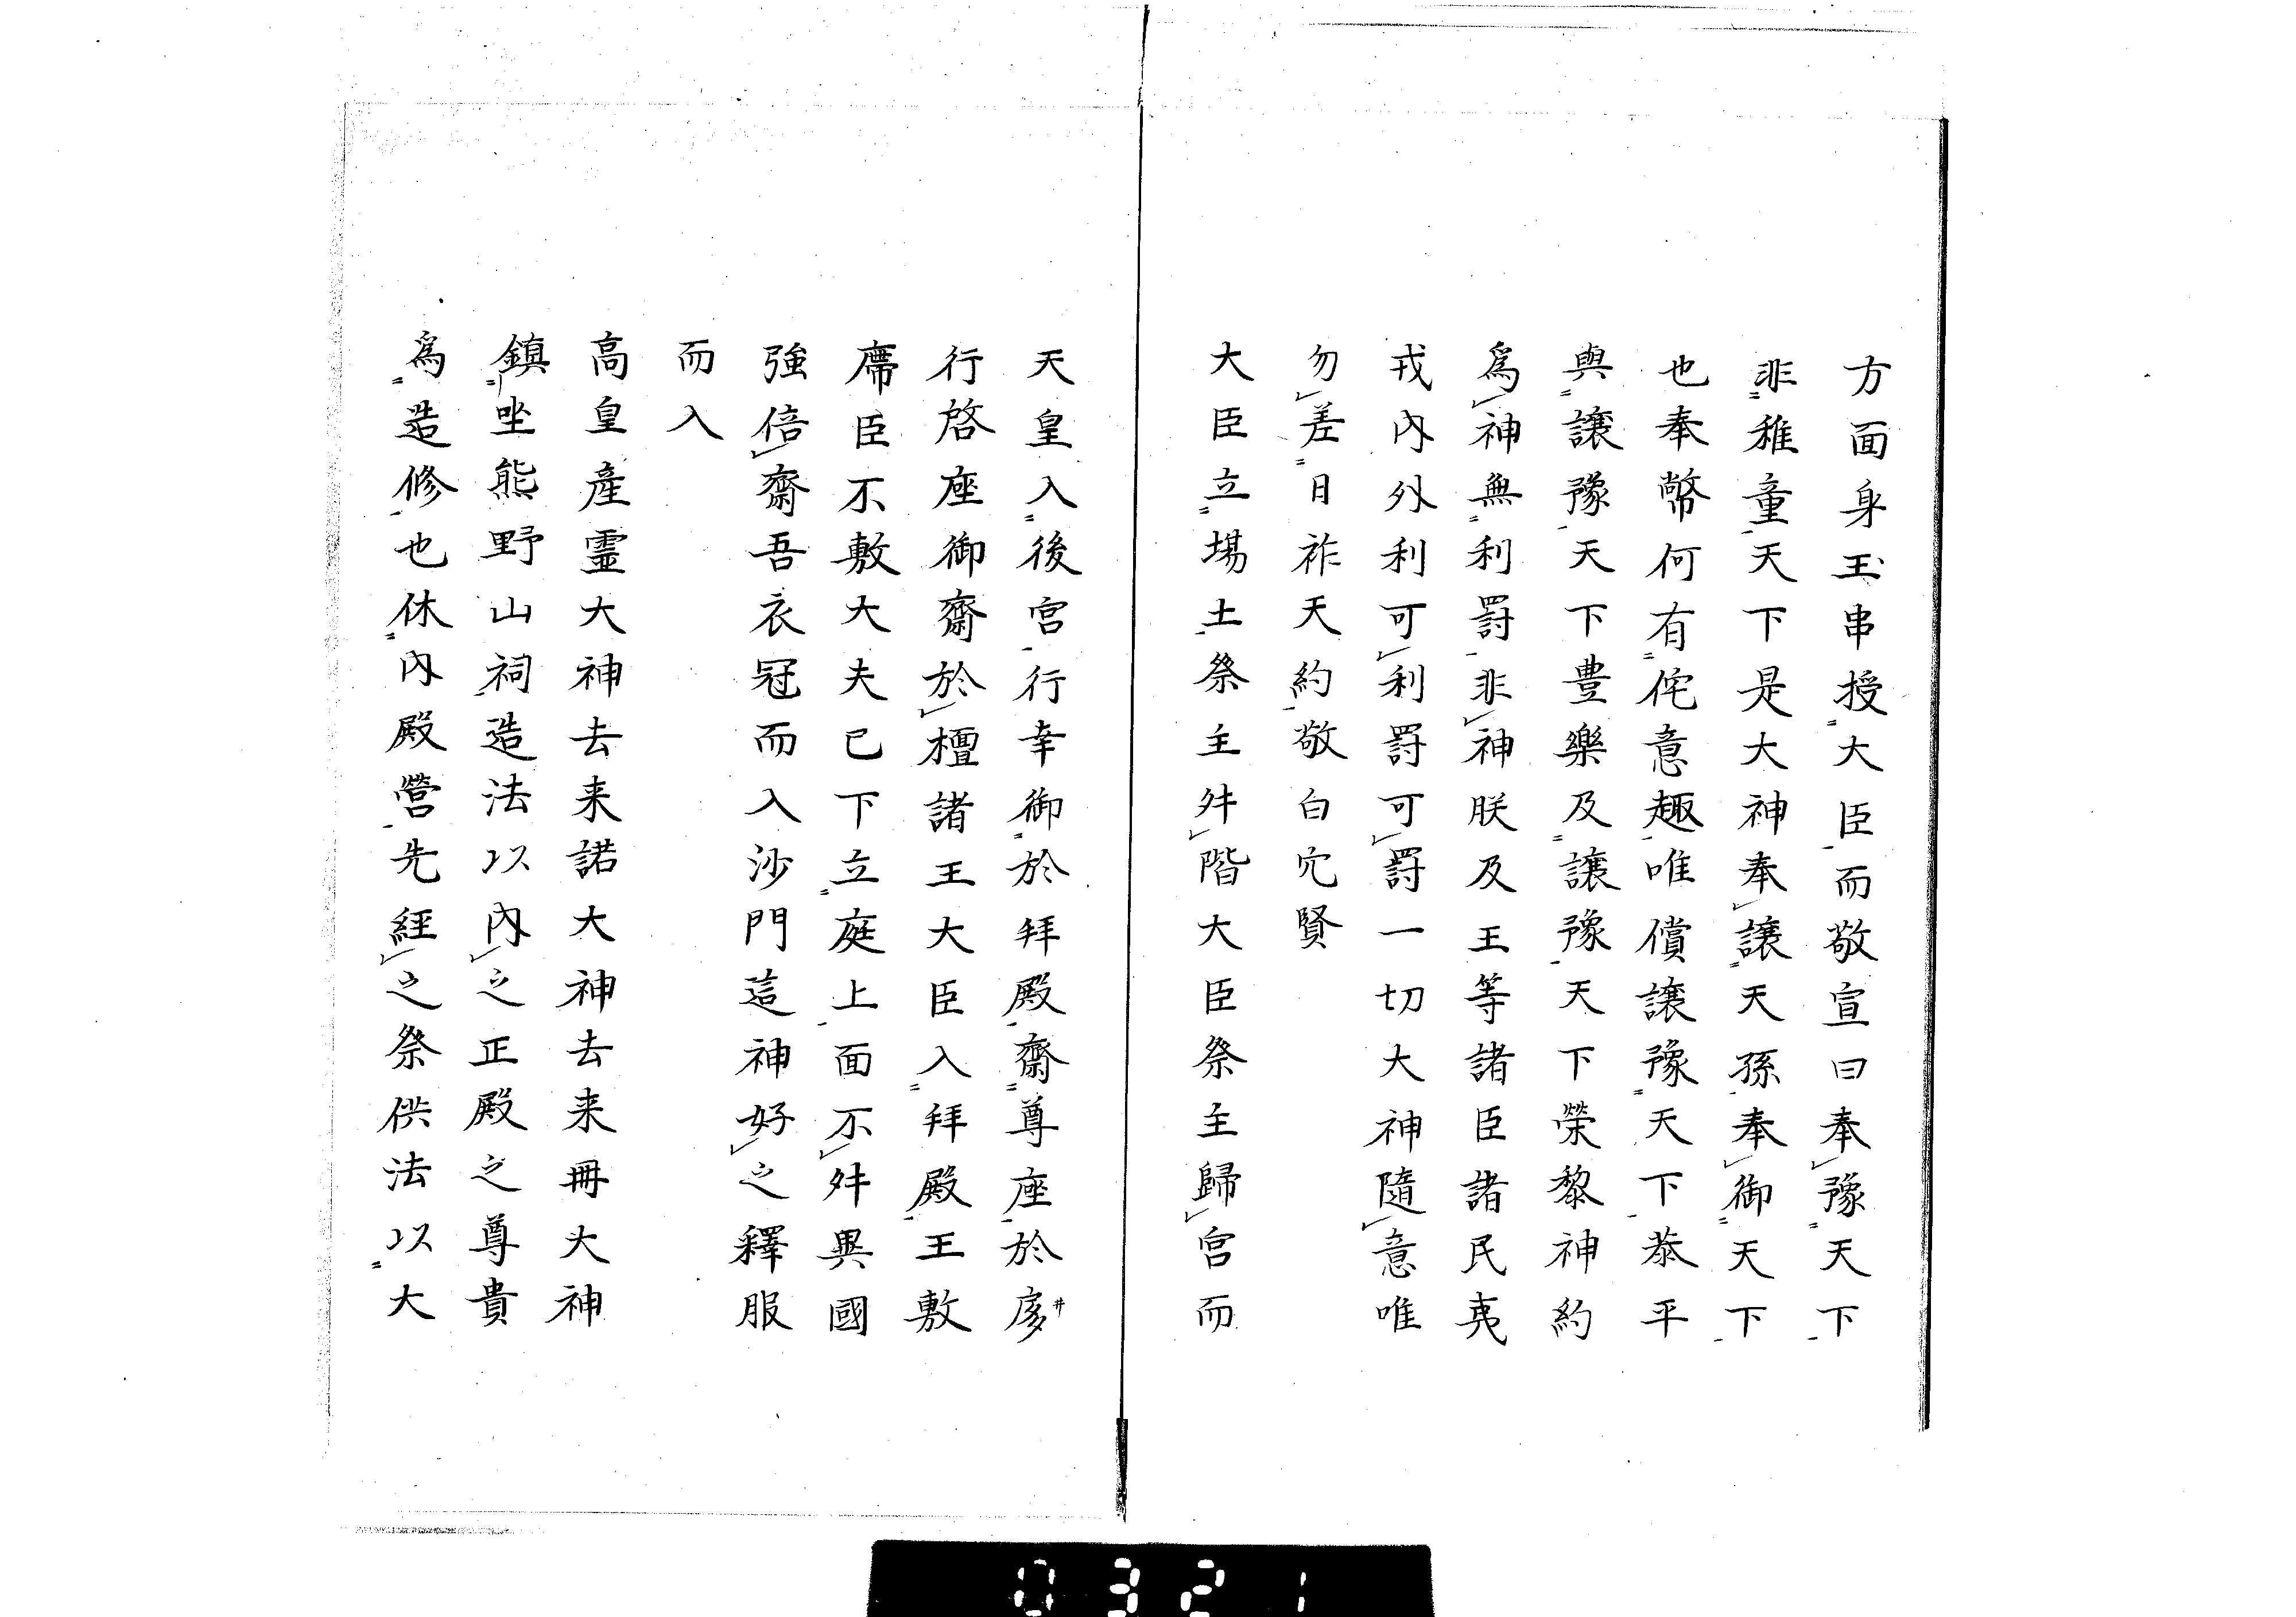 方面身玉串授大臣而敬宣曰奉豫天下
非稚童天下是大神奉讓天孫奉御天下
也奉幣何有侘意趣唯償讓豫天下恭平
與讓豫天下豊樂及讓豫天下榮黎神約
爲神無利罸非神朕及王等諸臣諸民夷
戎內外利可利罸可罸一切大神隨意唯
勿差日祚天約敬白穴賢
大臣立場土祭主舛階大臣祭主歸宮而
天皇入後宮行幸御於拜殿齋尊座於
行啓座御齋於檀諸王大臣入拜殿王敷
席臣不敷大夫已下立庭上面不舛異國
強倍齋吾衣冠而入沙門這神好之釋服
而入
高皇產霊大神去来諾大神去来冊大神
鎮坐熊野山祠造法以內之正殿之尊貴
爲造修也休內殿營先經之祭供法以大
0321